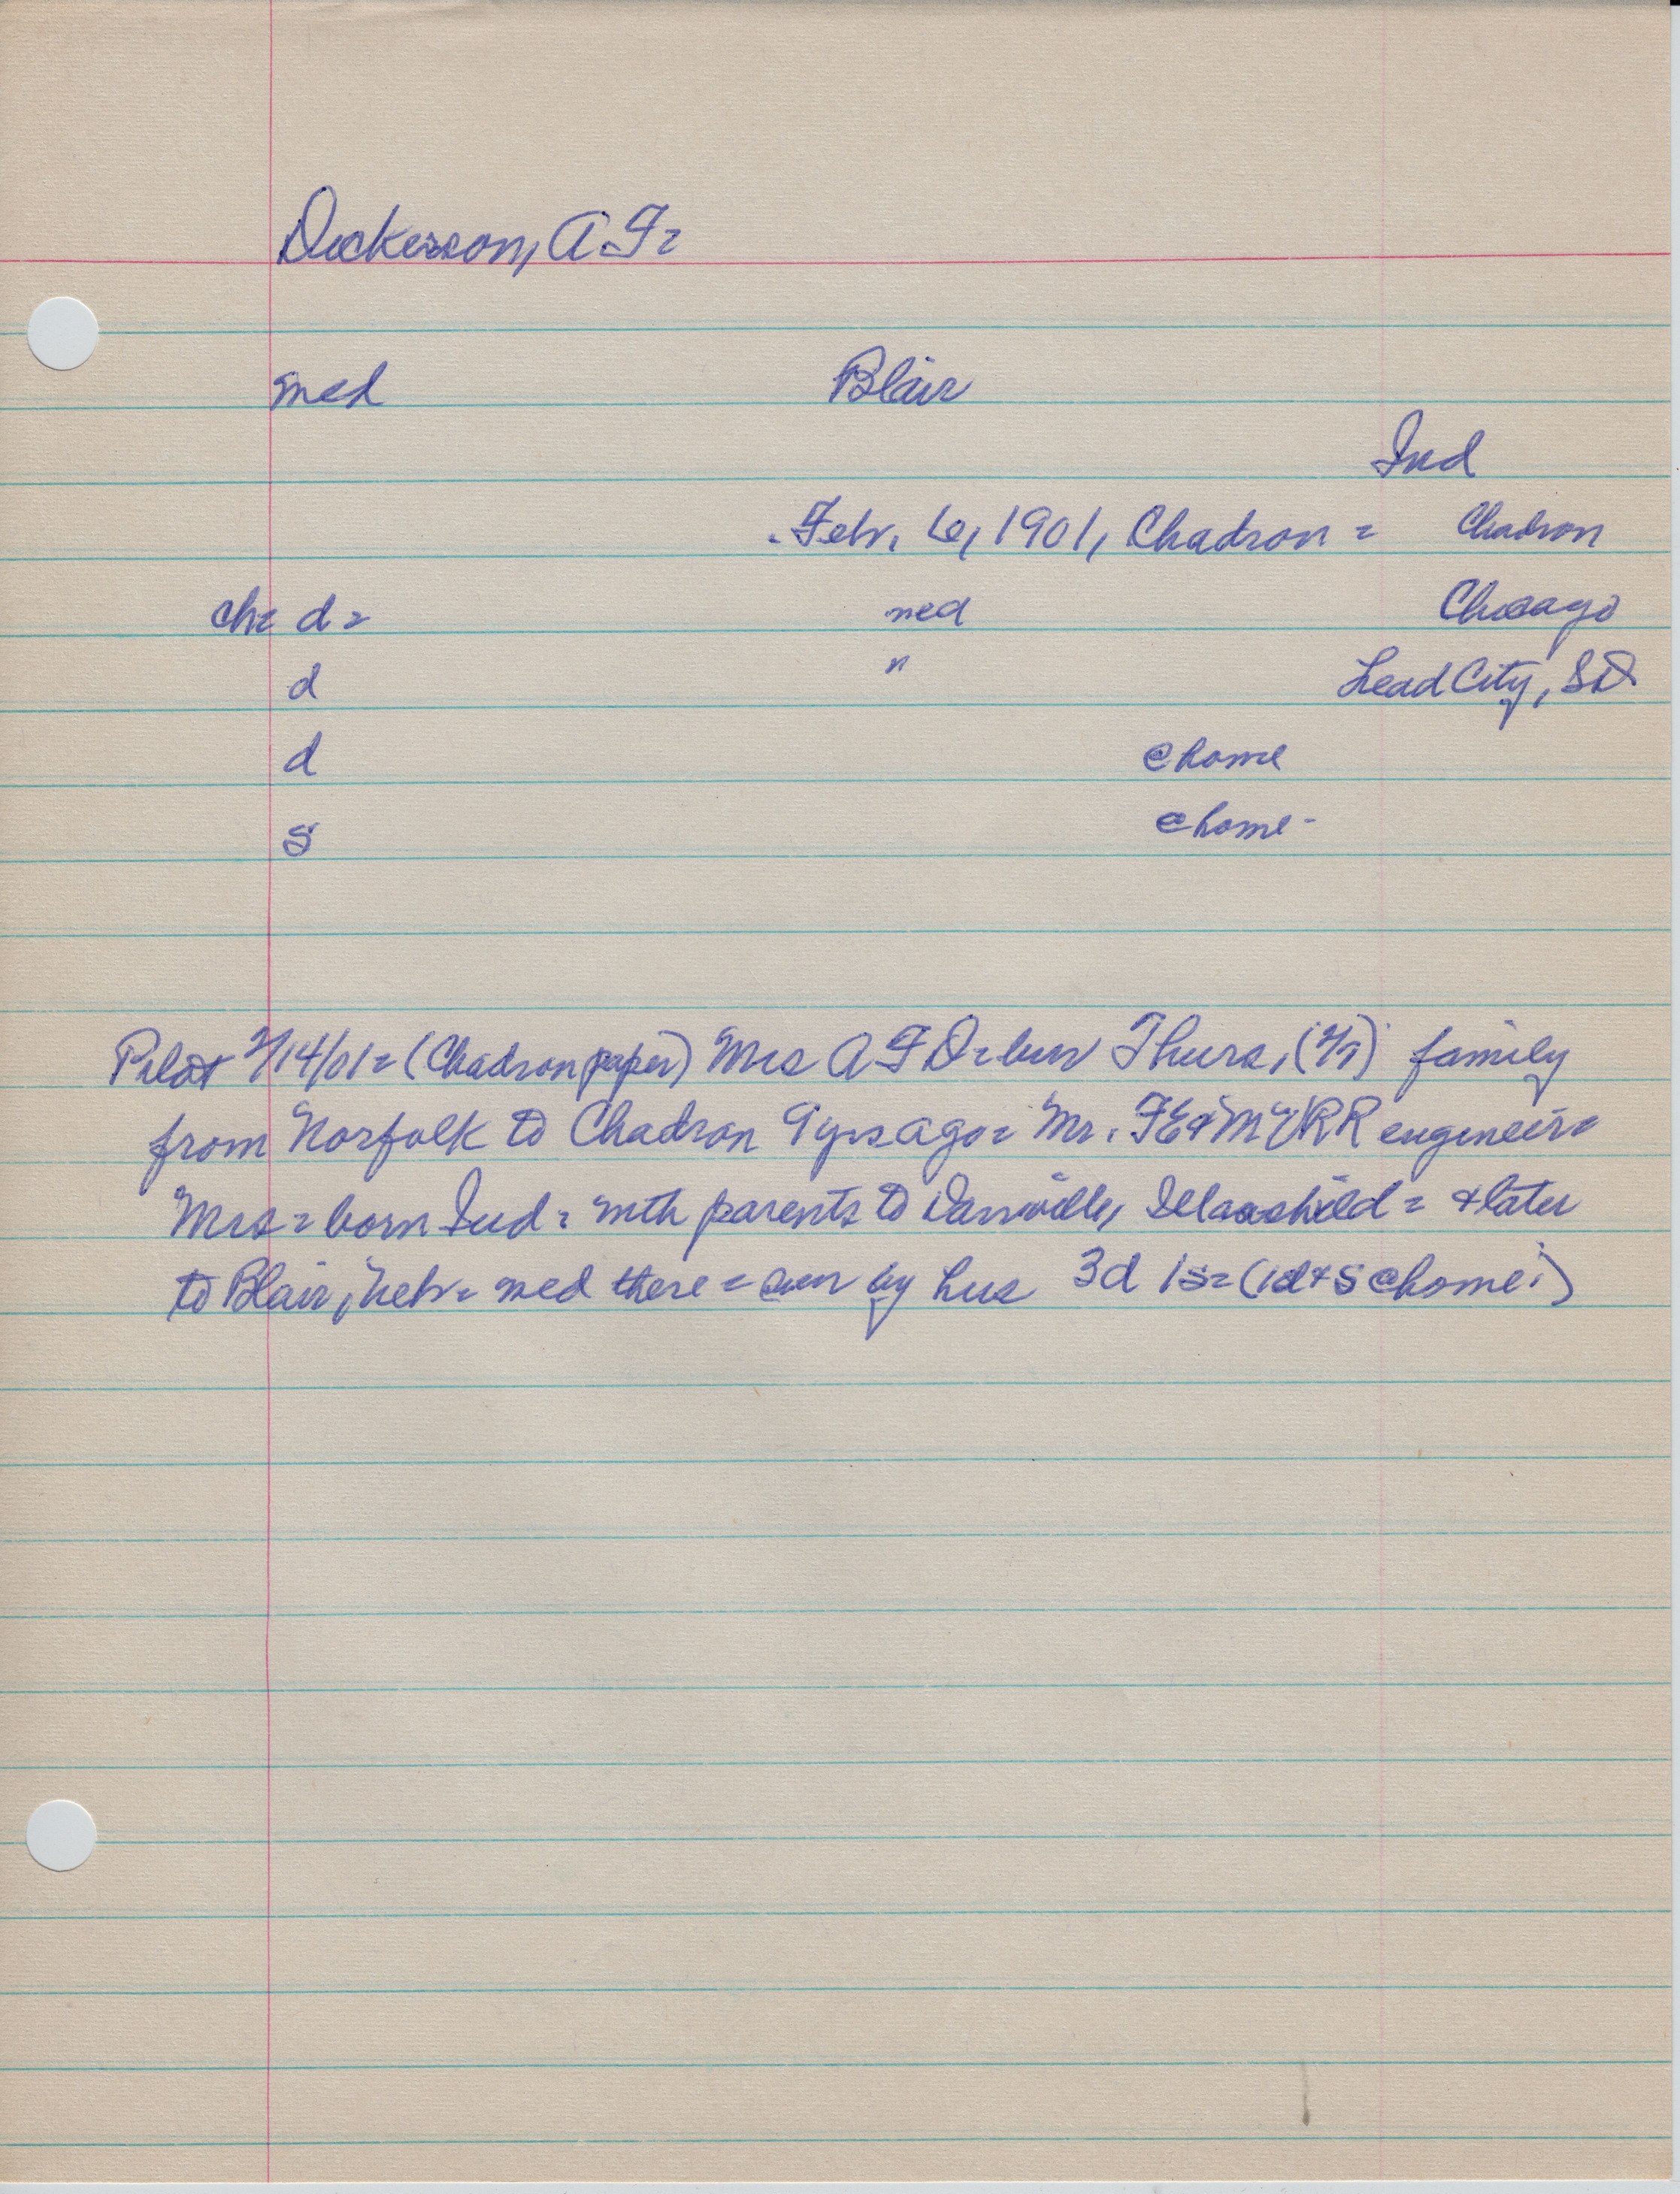 Dickerson, A.F=
med Blair
Ind
Febr. 6, 1901, Chadron = Chadron
ch= d= med Chicago
d " Lead City, SD
d @home
s @home-
Pilot 2/14/01= (Chadron paper) Mrs A F D= bur Thurs, (2/7) family
from Norfolk to Chadron 9 yrs ago= Mr. FE&MVRR engineer=
Mrs= born Ind= with parents to Danville, Ill as child = & later
to Blair, Nebr= med there = sur by hus 3d 1s= (1d & s @home.)